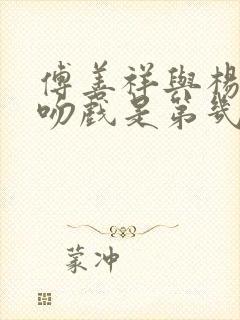 傅善祥與楊
吻戲是第幾
蒙冲